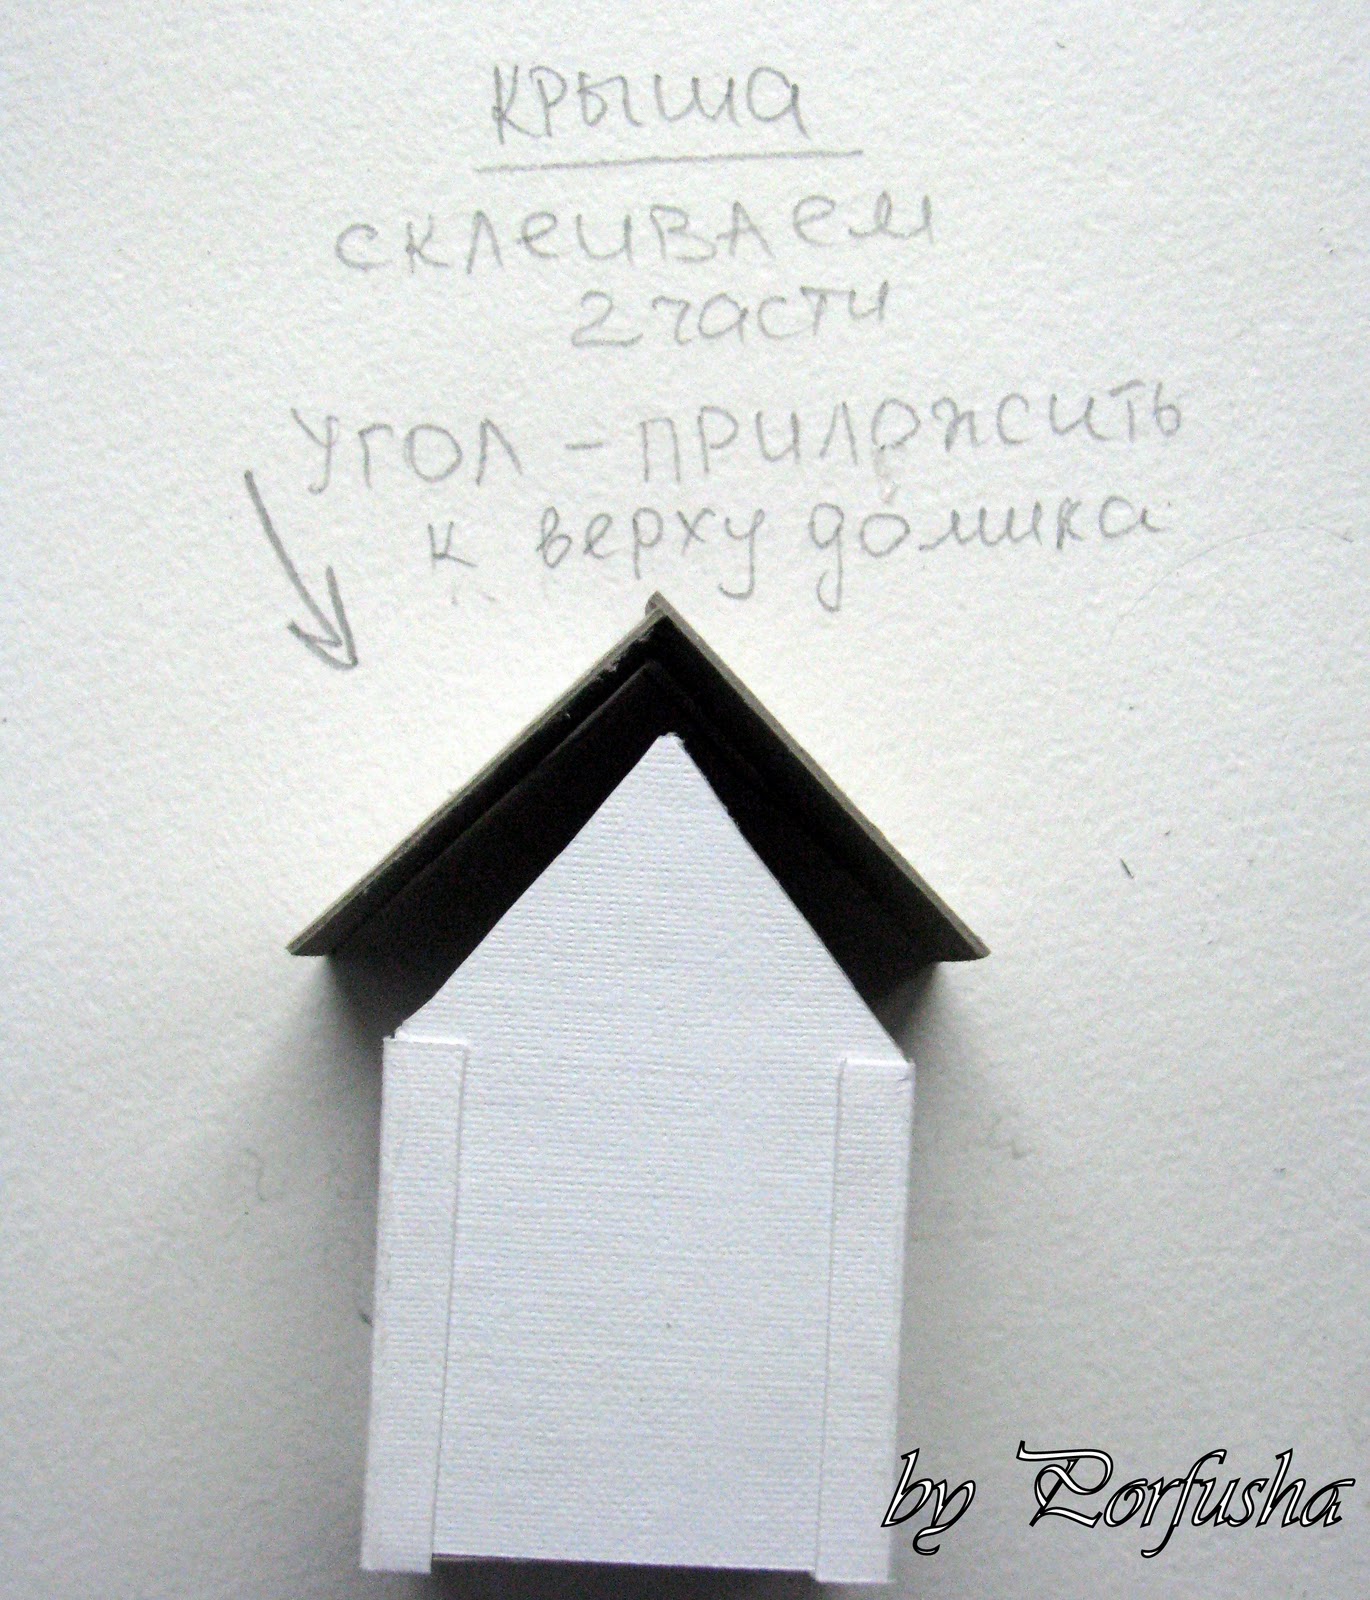 крыша
склеиваем
2 части
угол - приложить
к верху домика
by Porfusha